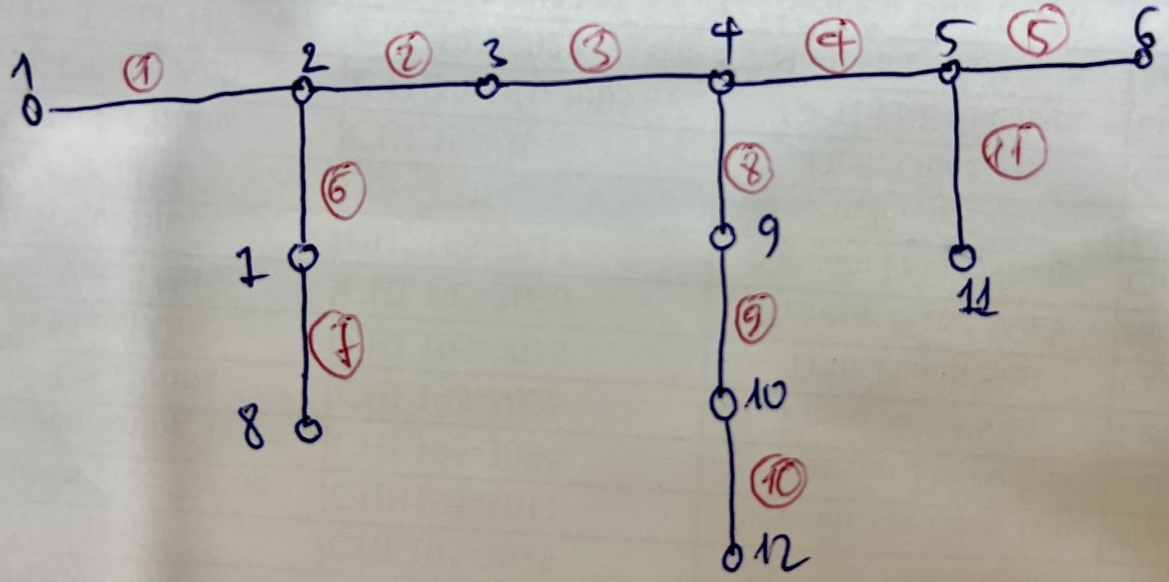 1 ① 2 ② 3 ③ 4 ④ 5 ⑤ 6
⑥ ⑧ ⑪
7 9
⑦ ⑨ 11
8 10
⑩
12